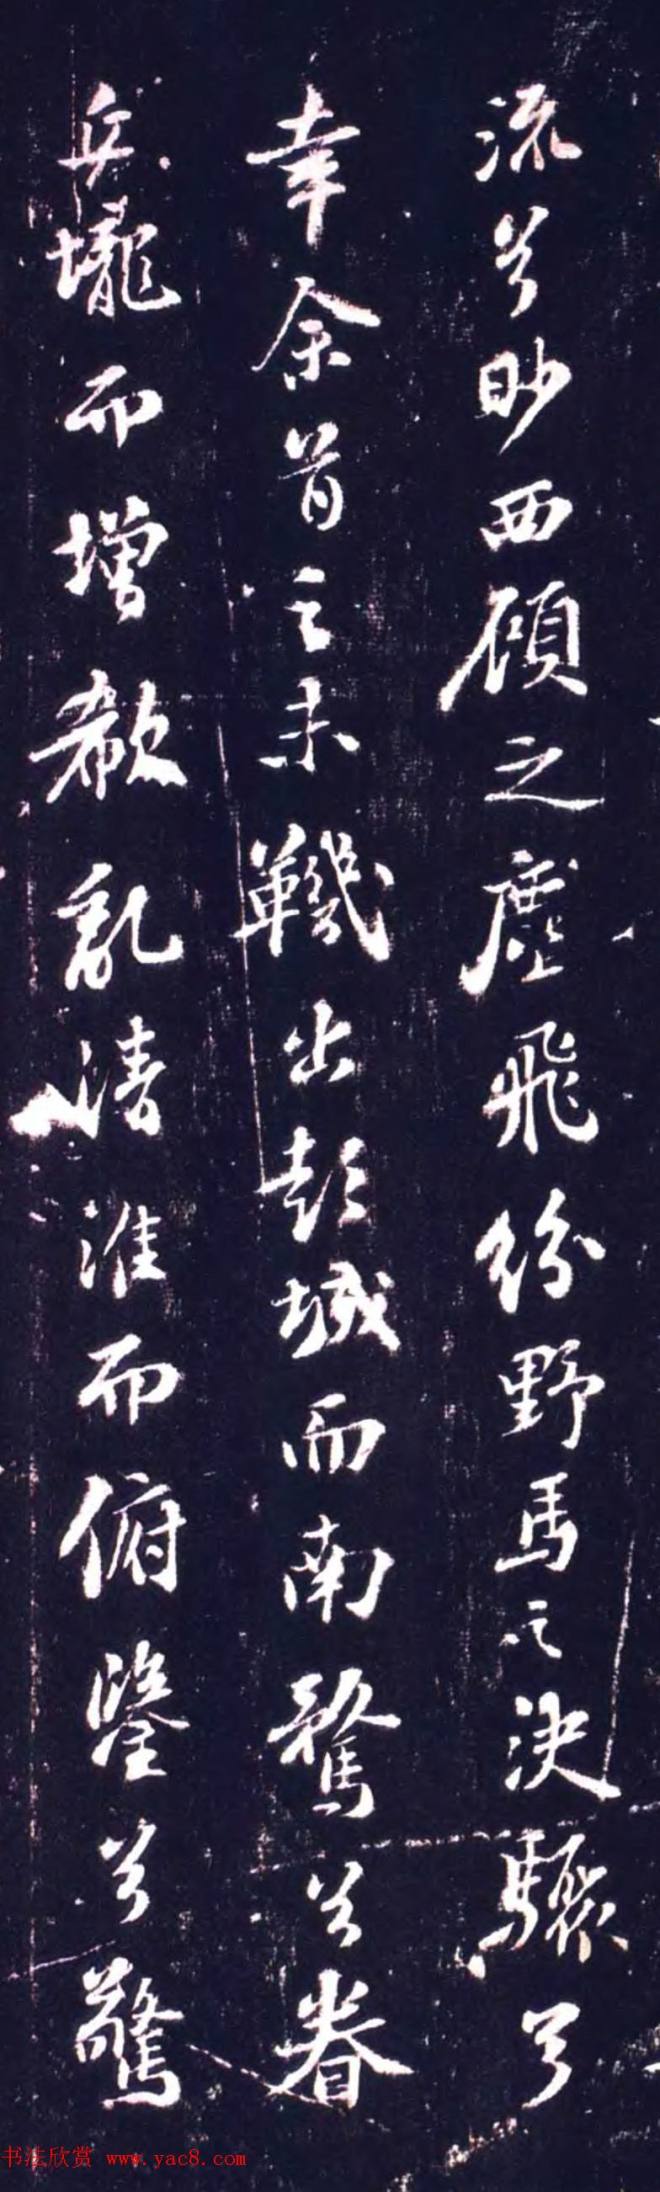 流兮眇西顾之塵飛紛野馬之決驟兮
幸余首之未鞿出彭城而南騖兮眷
丘壠而增欷亂清淮而俯鑒兮驚
书法欣赏 www.yac8.com